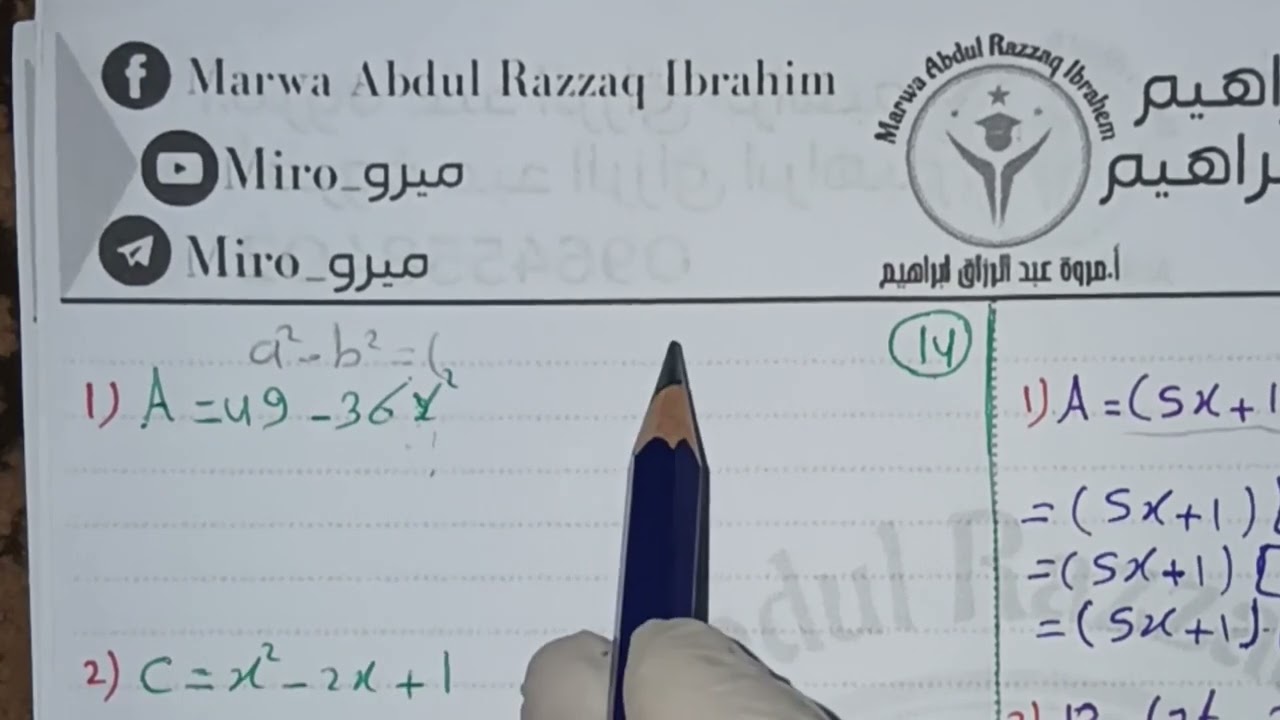 Marwa Abdul Razzaq Ibrahim
Miro_ميرو
Miro_ميرو
Marwa Abdul Razzaq Ibrahem
أ.مروة عبد الرزاق ابراهيم
a² - b² = (
14
1) A = 49 - 36x²
2) C = x² - 2x + 1
1) A = (5x + 1
= (5x + 1)
= (5x + 1) [
= (5x + 1)